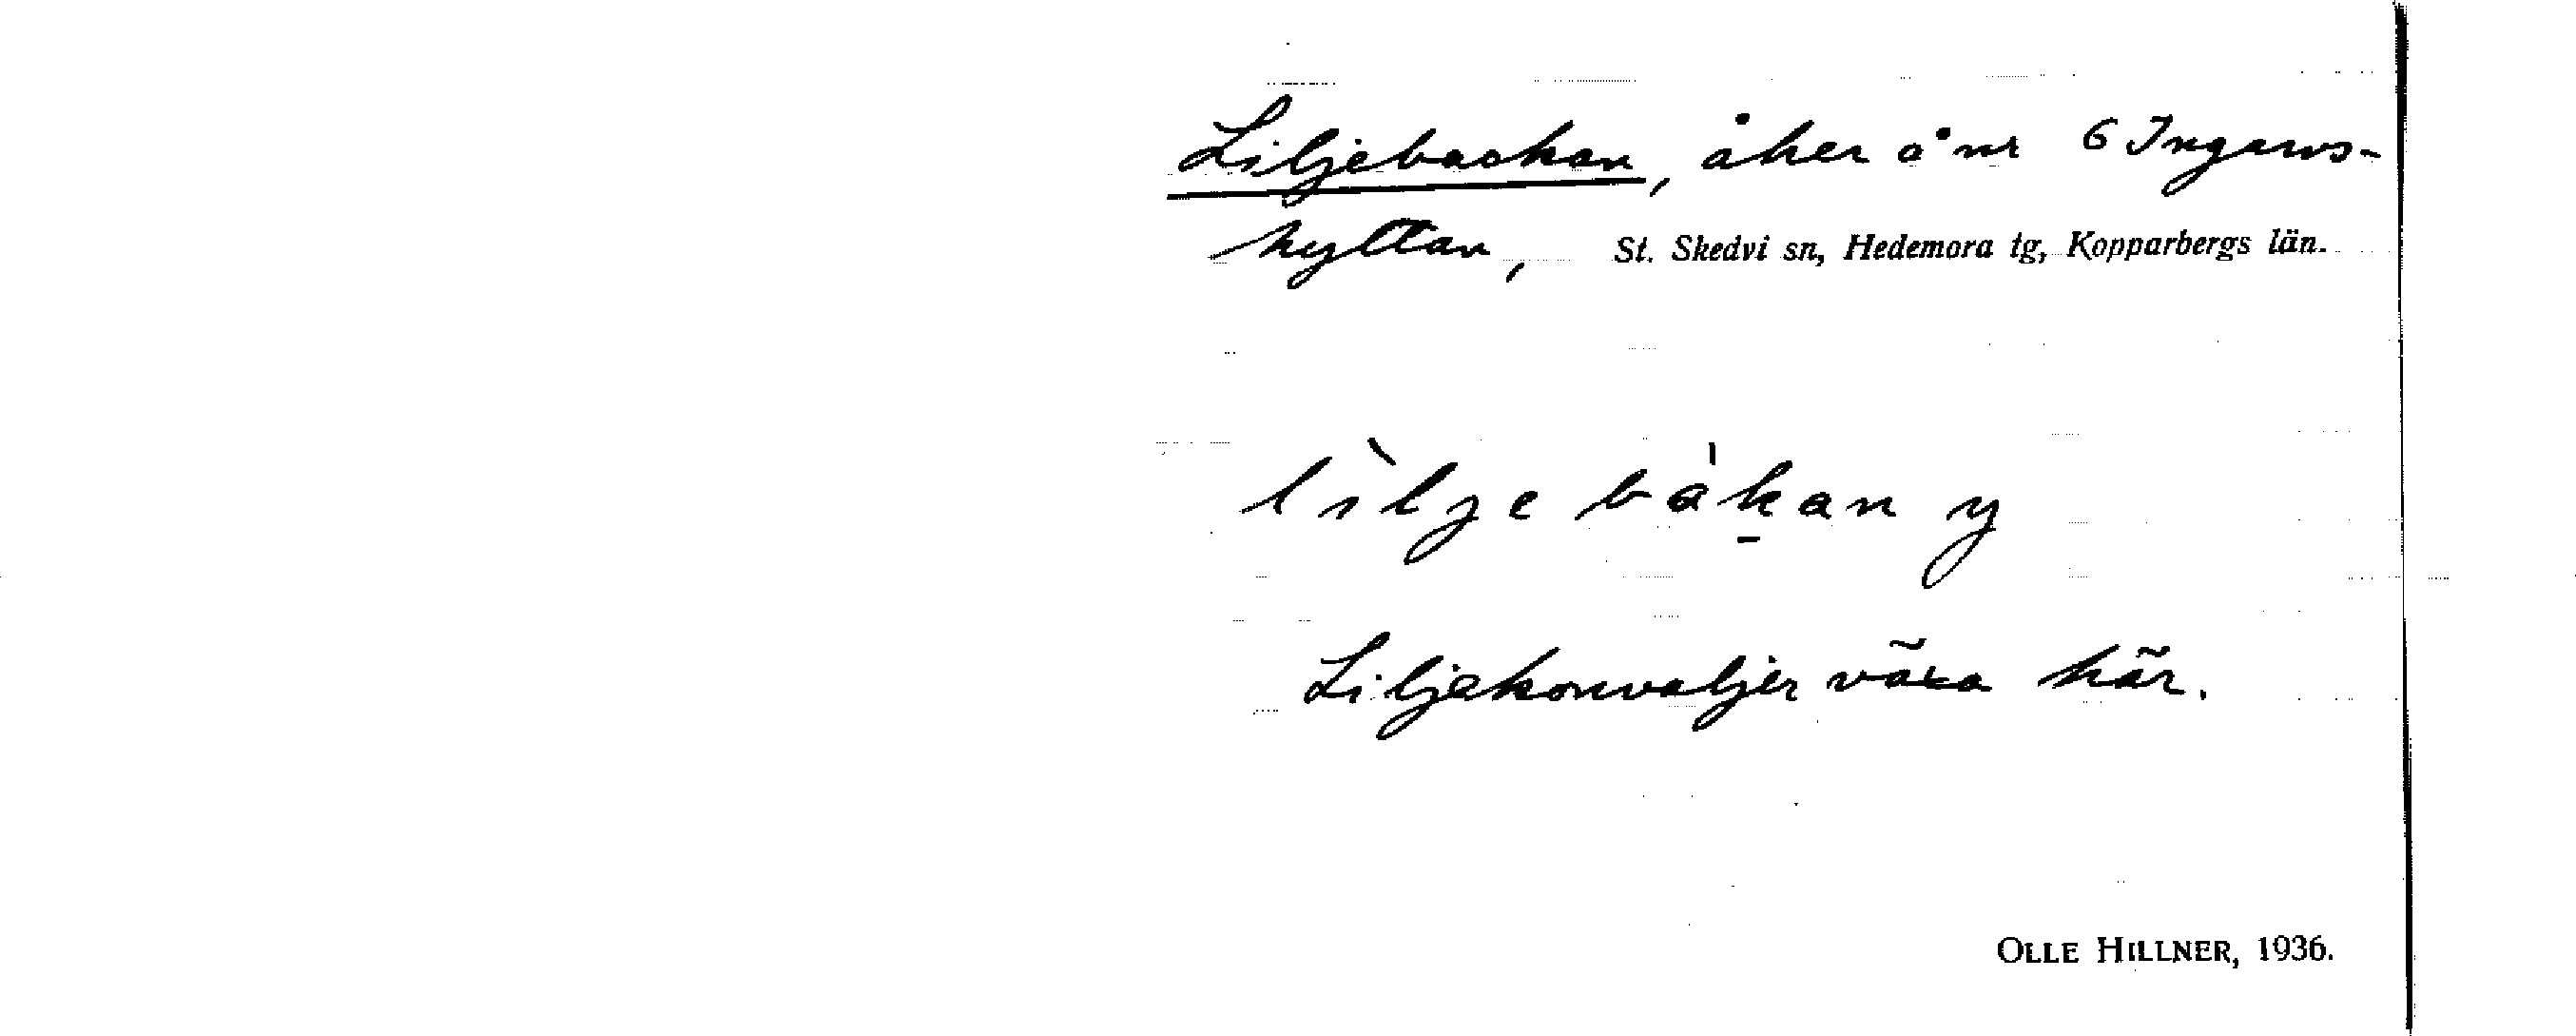 Liljebackan, åker å nr 6 Ingarvs-
hyttan, St. Skedvi sn, Hedemora tg, Kopparbergs län.
lìljebàkan y
Liljekonvaljer växa här.
OLLE HILLNER, 1936.